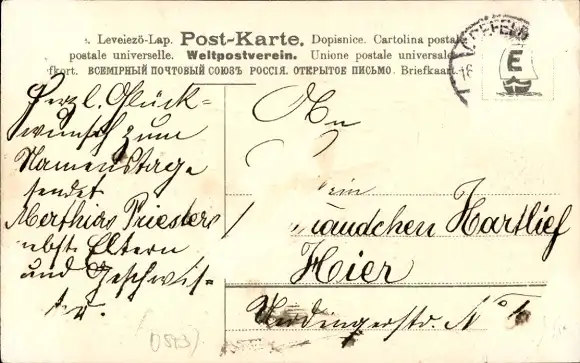 . Leveiezö-Lap. Post-Karte. Dopisnice. Cartolina postale
postale universelle. Weltpostverein. Unione postale universale
fkort. ВСЕМІРНЫЙ ПОЧТОВЫЙ СОЮЗЪ РОССІЯ. ОТКРЫТОЕ ПИСЬМО. Briefkaart.
CREFELD
E
Herzl. Glück-
wunsch zum
Namenstage
sendet
Matthias Priesters
nebst Eltern
und Geschwis-
ter.
An
äudchen Hartlief
Hier
Uerdingerstr. No